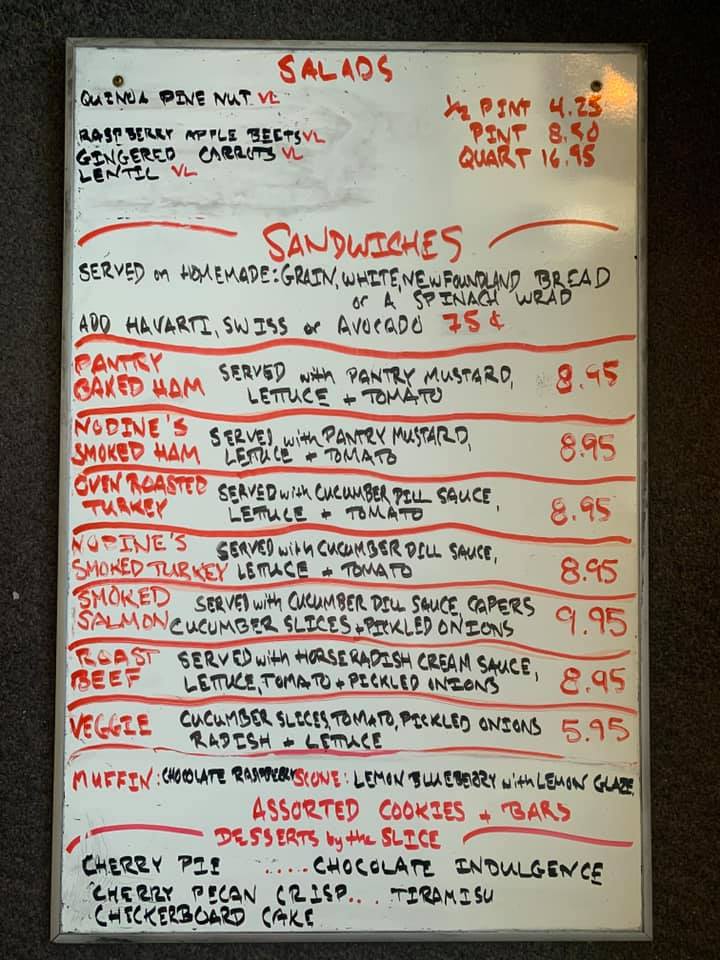 SALADS
QUINOA PINE NUT VL
1/2 PINT 4.25
RASPBERRY APPLE BEETS VL
PINT 8.50
GINGERED CARROTS VL
QUART 16.95
LENTIL VL
SANDWICHES
SERVED on HOMEMADE: GRAIN, WHITE, NEWFOUNDLAND BREAD
or A SPINACH WRAP
ADD HAVARTI, SWISS or AVOCADO 75¢
PANTRY
BAKED HAM
SERVED with PANTRY MUSTARD,
LETTUCE + TOMATO
8.95
NODINE'S
SMOKED HAM
SERVED with PANTRY MUSTARD,
LETTUCE + TOMATO
8.95
OVEN ROASTED
TURKEY
SERVED with CUCUMBER DILL SAUCE,
LETTUCE + TOMATO
8.95
NODINE'S
SMOKED TURKEY
SERVED with CUCUMBER DILL SAUCE,
LETTUCE + TOMATO
8.95
SMOKED
SALMON
SERVED with CUCUMBER DILL SAUCE, CAPERS
CUCUMBER SLICES + PICKLED ONIONS
9.95
ROAST
BEEF
SERVED with HORSERADISH CREAM SAUCE,
LETTUCE, TOMATO + PICKLED ONIONS
8.95
VEGGIE
CUCUMBER SLICES, TOMATO, PICKLED ONIONS
RADISH + LETTUCE
5.95
MUFFIN: CHOCOLATE RASPBERRY SCONE: LEMON BLUEBERRY with LEMON GLAZE
ASSORTED COOKIES + BARS
DESSERTS by the SLICE
CHERRY PIE ..... CHOCOLATE INDULGENCE
CHERRY PECAN CRISP... TIRAMISU
CHECKERBOARD CAKE